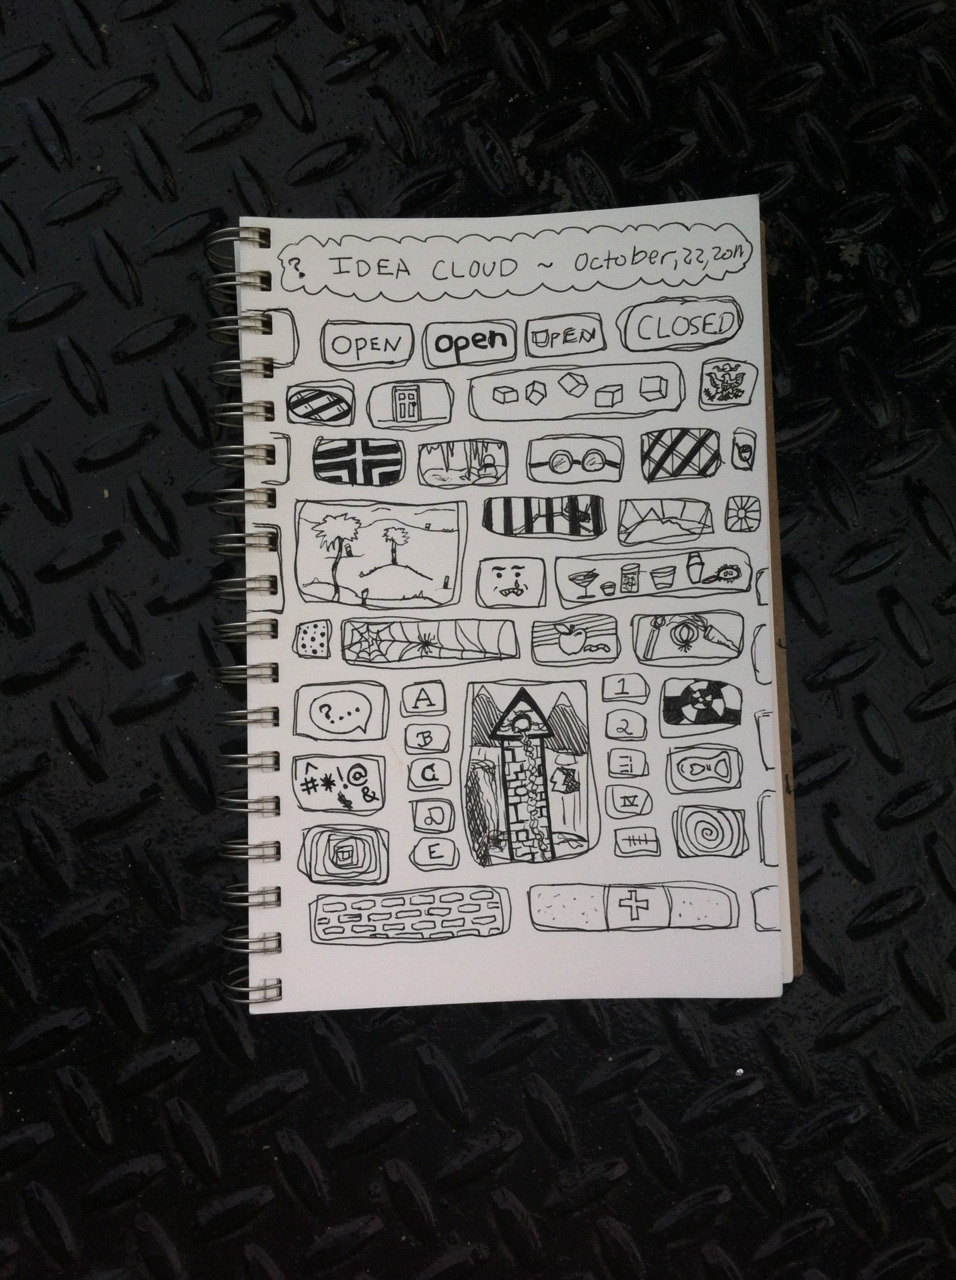 ? IDEA CLOUD ~ October, 22, 2011
OPEN
open
OPEN
CLOSED
?....
A
1
B
2
^
#*!@
&
C
III
D
IV
E